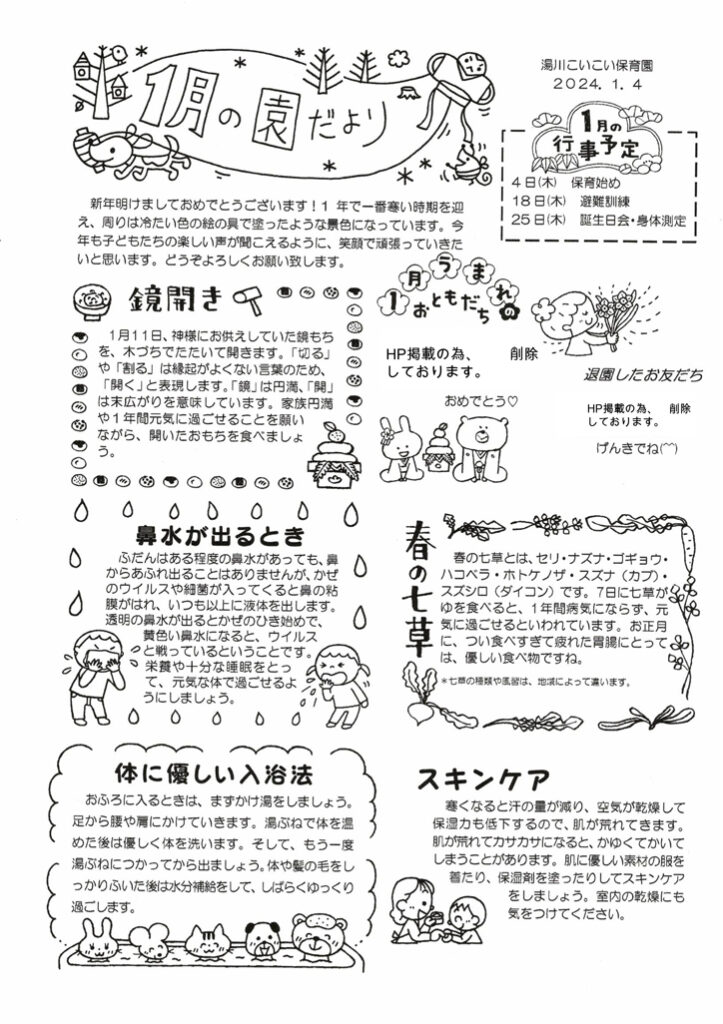 湯川こいこい保育園
2024.1.4
1月の園だより
1月の
行事予定
4日(木) 保育始め
18日(木) 避難訓練
25日(木) 誕生日会・身体測定
新年明けましておめでとうございます!1年で一番寒い時期を迎
え、周りは冷たい色の絵の具で塗ったような景色になっています。今
年も子どもたちの楽しい声が聞こえるように、笑顔で頑張っていきた
いと思います。どうぞよろしくお願い致します。
鏡開き
1月11日、神様にお供えしていた鏡もち
を、木づちでたたいて開きます。「切る」
や「割る」は縁起がよくない言葉のため、
「開く」と表現します。「鏡」は円満、「開」
は末広がりを意味しています。家族円満
や1年間元気に過ごせることを願い
ながら、開いたおもちを食べましょ
う。
1月うまれの
おともだち
HP掲載の為、 削除
しております。
おめでとう♡
退園したお友だち
HP掲載の為、 削除
しております。
げんきでね(^^)
鼻水が出るとき
ふだんはある程度の鼻水があっても、鼻
からあふれ出ることはありませんが、かぜ
のウイルスや細菌が入ってくると鼻の粘
膜がはれ、いつも以上に液体を出します。
透明の鼻水が出るとかぜのひき始めで、
黄色い鼻水になると、ウイルス
と戦っているということです。
栄養や十分な睡眠をとっ
て、元気な体で過ごせるよ
うにしましょう。
春の七草
春の七草とは、セリ・ナズナ・ゴギョウ・
ハコベラ・ホトケノザ・スズナ(カブ)・
スズシロ(ダイコン)です。7日に七草が
ゆを食べると、1年間病気にならず、元
気に過ごせるといわれています。お正月
に、つい食べすぎて疲れた胃腸にとって
は、優しい食べ物ですね。
*七草の種類や風習は、地域によって違います。
体に優しい入浴法
おふろに入るときは、まずかけ湯をしましょう。
足から腰や肩にかけていきます。湯ぶねで体を温
めた後は優しく体を洗います。そして、もう一度
湯ぶねにつかってから出ましょう。体や髪の毛をし
っかりふいた後は水分補給をして、しばらくゆっくり
過ごします。
スキンケア
寒くなると汗の量が減り、空気が乾燥して
保湿力も低下するので、肌が荒れてきます。
肌が荒れてカサカサになると、かゆくてかいて
しまうことがあります。肌に優しい素材の服を
着たり、保湿剤を塗ったりしてスキンケア
をしましょう。室内の乾燥にも
気をつけてください。